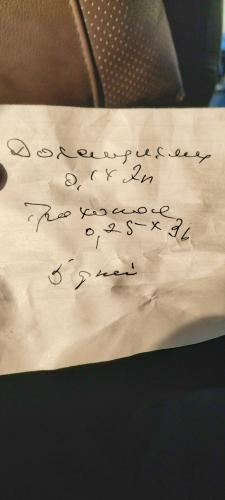 Доксициклин
0,1 х 2р
Трихопол
0,25 х 3р
5 дней